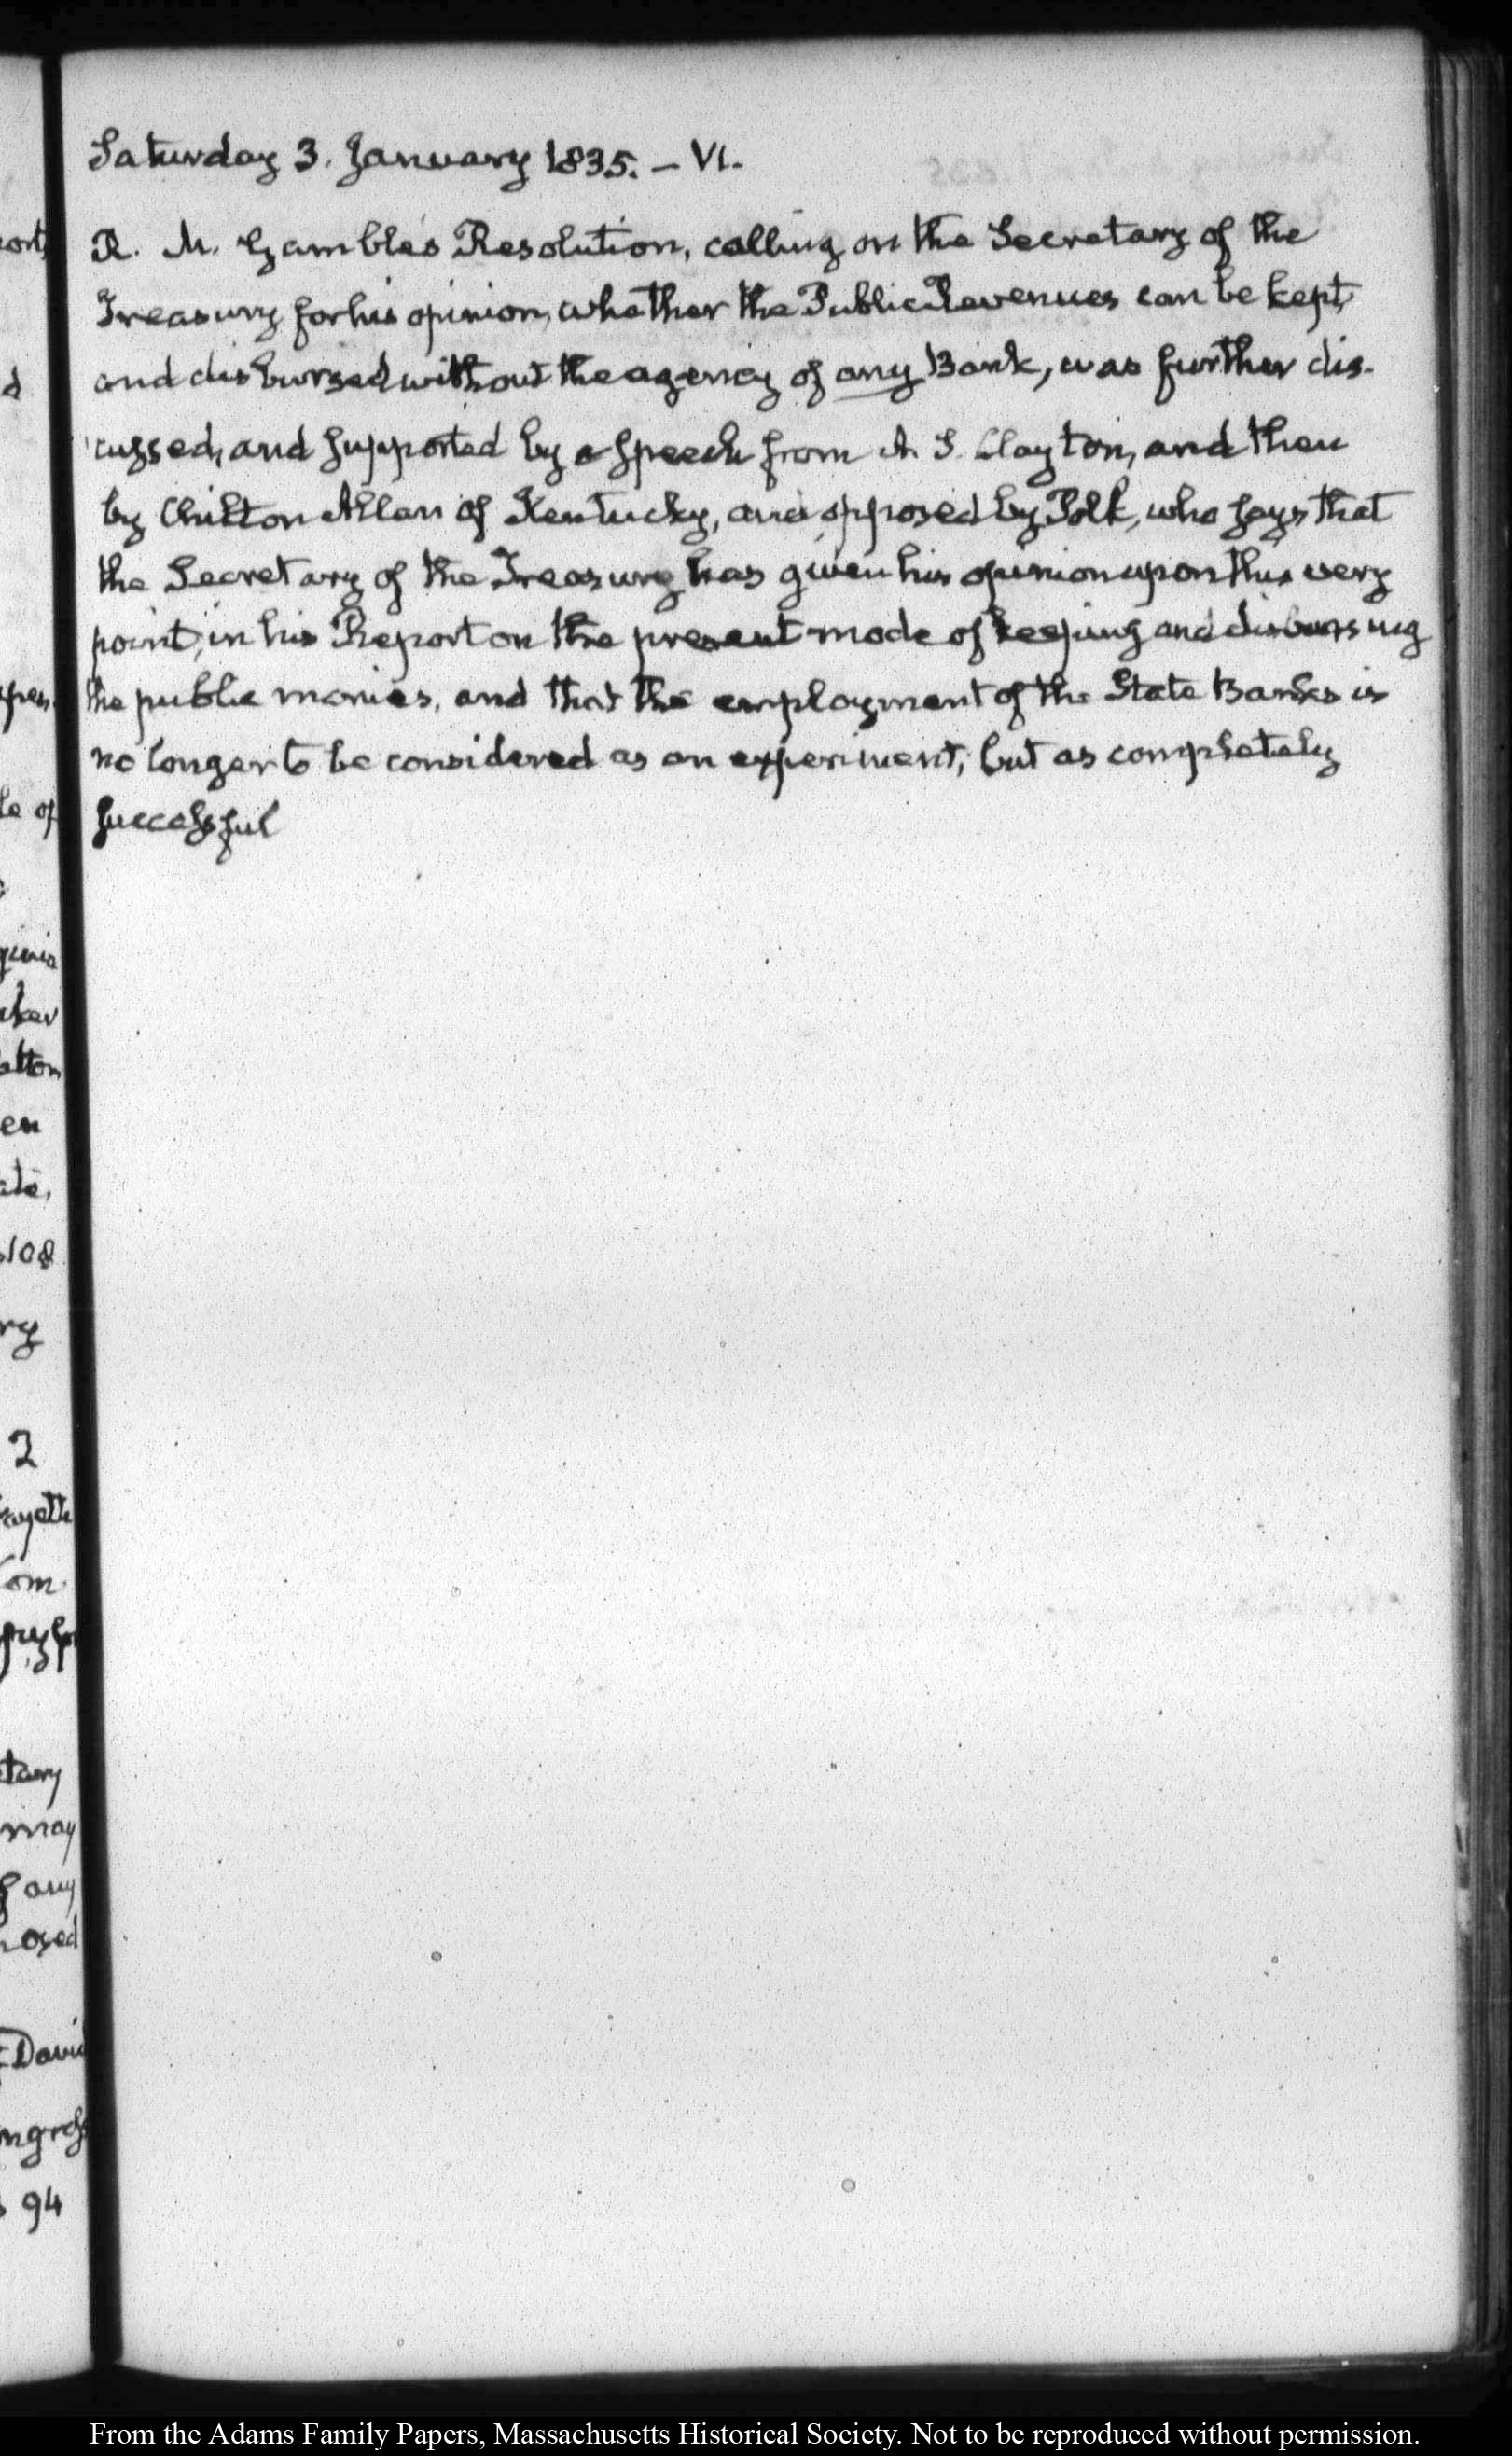 Saturday 3. January 1835. – VI.
R. M. Gamble's Resolution, calling on the Secretary of the
Treasury for his opinion, whether the Public Revenues can be kept,
and disbursed without the agency of any Bank, was further dis-
cussed, and supported by a speech from A. S. Clayton, and then
by Chilton Allan of Kentucky, and opposed by Polk, who says that
the Secretary of the Treasury has given his opinion upon this very
point, in his Report on the present mode of keeping and disbursing
the public monies, and that the employment of the State Banks is
no longer to be considered as an experiment, but as completely
successful
ort
d
le of
ginia
en
108
ry
2
may
any
David
94
From the Adams Family Papers, Massachusetts Historical Society. Not to be reproduced without permission.